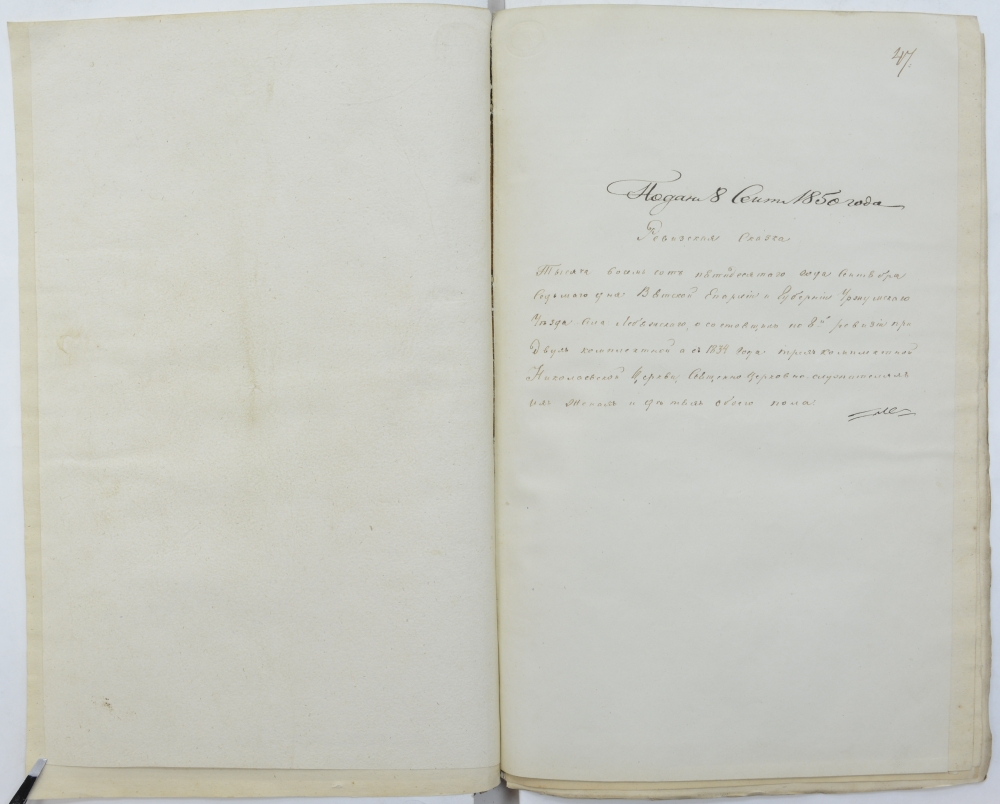 47.
Подан 8 Сент. 1850 года
Ревизская Сказка
Тысяча восемь сотъ пятидесятаго года Сентября
Седьмаго дня Вятской Епархіи и Губерніи Уржумскаго
Уѣзда Села Лебяжскаго, о состоящихъ по 8й ревизіи при
двухъ комплектной а съ 1839 года трехъ комплектной
Николаевской Церкви Священно церковно-служителяхъ
ихъ женахъ и дѣтяхъ обоего пола.